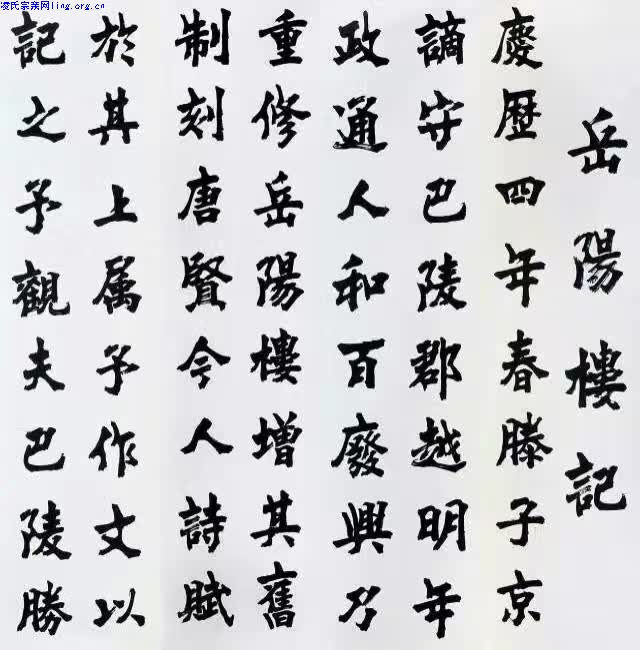 凌氏宗亲网ling.org.cn
岳陽樓記
慶歷四年春滕子京
謫守巴陵郡越明年
政通人和百廢興乃
重修岳陽樓增其舊
制刻唐賢今人詩賦
於其上属予作文以
記之予觀夫巴陵勝